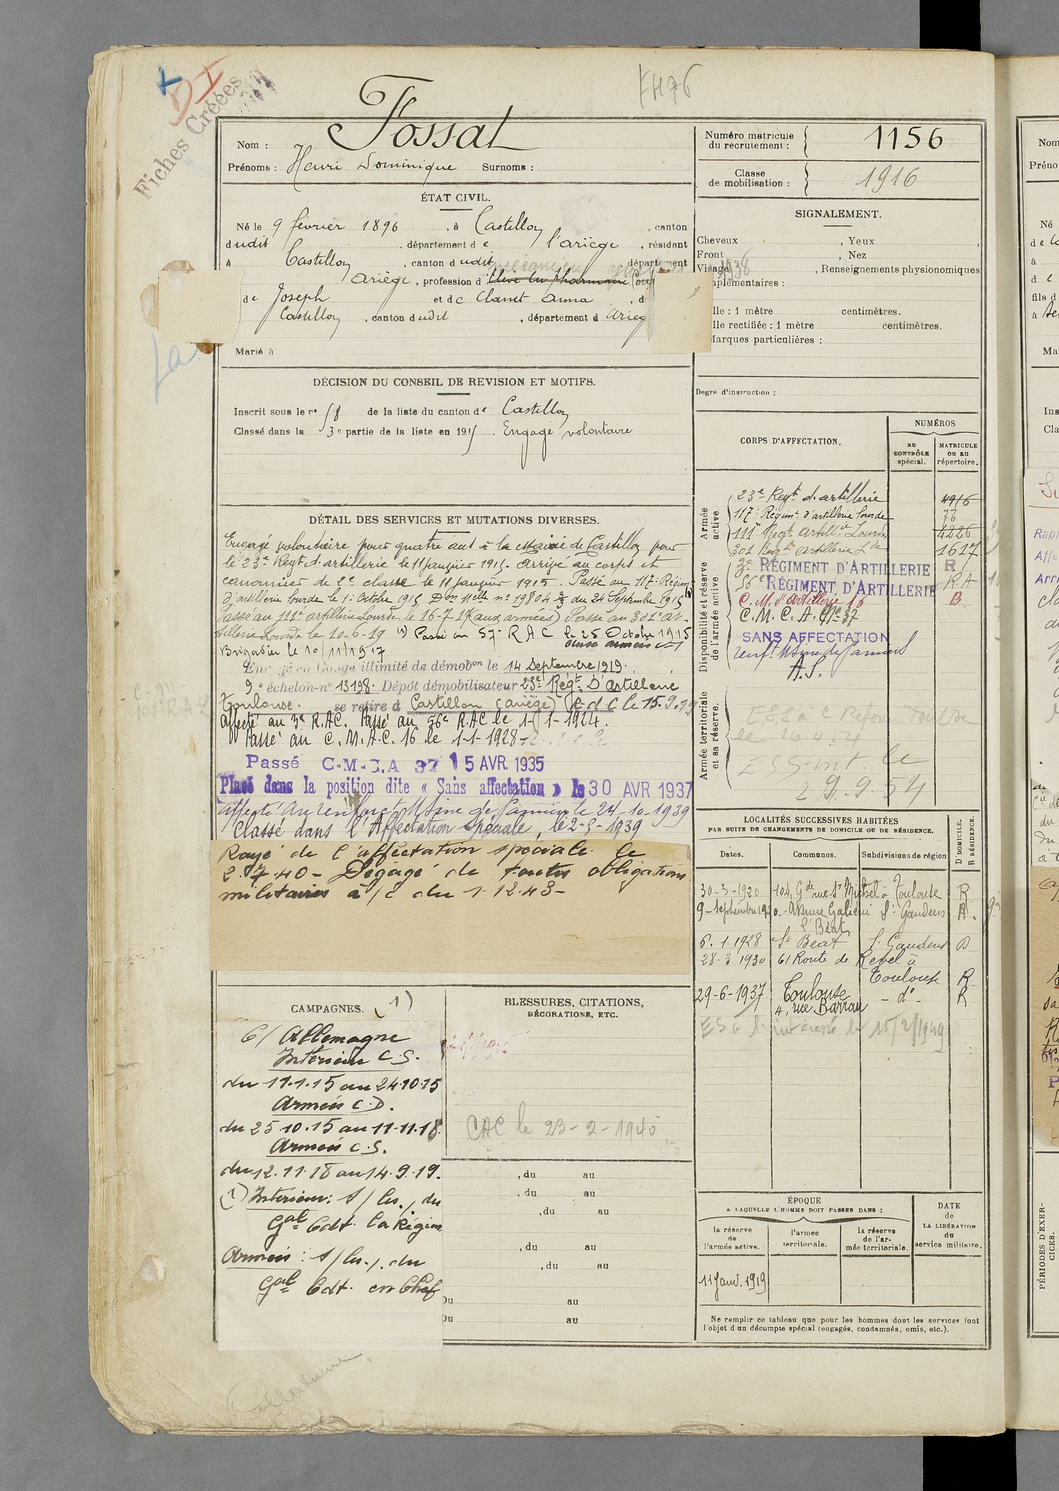 FH76
Fiches Créées
Fossat
Nom :
Prénoms : Henri Dominique Surnoms :
Numéro matricule du recrutement : 1156
Classe de mobilisation : 1916
ÉTAT CIVIL.
Né le 9 février 1896, à Castillon, canton
dudit, département de l'ariège, résidant
à Castillon, canton dudit, département
Ariège, profession d'
de Joseph et de Clanet anna, d
Castillon, canton dudit, département d Arieg
Marié à
SIGNALEMENT.
Cheveux, Yeux,
Front, Nez
Visage, Renseignements physionomiques
mplémentaires :
lle : 1 mètre centimètres.
lle rectifiée : 1 mètre centimètres.
Marques particulières :
Degré d'instruction :
DÉCISION DU CONSEIL DE REVISION ET MOTIFS.
Inscrit sous le n° 58 de la liste du canton de Castillon
Classé dans la 3e partie de la liste en 1915. Engagé volontaire
DÉTAIL DES SERVICES ET MUTATIONS DIVERSES.
Engagé volontaire pour quatre ans à la mairie de Castillon pour
le 23e Regt d'artillerie le 11 janvier 1915. Arrivé au corps et
canonnier de 2e classe le 11 janvier 1915. Passé au 117e Régim
d'artillerie lourde le 1er Octobre 1915 Don Mlle n° 19804 du 24 Septembre 1915
Passé au 111e artillerie Lourde le 16-7-17 (aux armées) Passé au 301e ar-
tillerie Lourde le 10-6-19 Passé au 57e RAC le 25 Octobre 1915
Brigadier le 10/11/1917
Envoyé en Congé illimité de démobon le 14 Septembre 1919.
9e échelon - n° 13198. Dépôt démobilisateur 23e Régt D'artillerie
Toulouse. se retire à Castillon (Ariège) C d C le 15.9.19
affecté au 3e R.A.C. Passé au 56e R.A.C le 1-1-1924.
Passé au C.M.A.C. 16 le 1-1-1928
Passé C.M.I.A 37 15 AVR. 1935
Placé dans la position dite « Sans affectation » le 30 AVR 1937
affecté Au renfort Usine de Pamiers le 24-10-1939
Classé dans l'Affectation Spéciale, le 2-9-1939
Rayé de l'affectation spéciale le
2.7.40 - Dégagé de toutes obligations
militaires à/c du 1.12.43 -
CORPS D'AFFECTATION.
NUMÉROS
AU CONTRÔLE spécial.
MATRICULE OU AU répertoire.
Armée active
23e Regt d'artillerie 4916
117e Régimt d'artillerie lourde 76
111e Regt artillie Lourde 4226
301 Regt artillerie Lde 1617
Disponibilité et réserve de l'armée active
3e RÉGIMENT D'ARTILLERIE R
56e RÉGIMENT D'ARTILLERIE RA
C.M. d'artillerie 16 B
C.M.C.A. N° 37
SANS AFFECTATION
renft Usine de Pamiers
A.S.
Armée territoriale et sa réserve.
ESS à C Réforme Toulouse
le 16 4 54
ESS int. le
29-9-54
LOCALITÉS SUCCESSIVES HABITÉES
PAR SUITE DE CHANGEMENTS DE DOMICILE OU DE RÉSIDENCE.
Dates. Communes. Subdivisions de région D DOMICILE. R RÉSIDENCE.
30-3-1920 104, Gde rue St Michel à Toulouse R
9-Septembre Avenue Galiéni St Gaudens R.
6.1.1928 St Béat St Gaudens D
28-3-1930 61 Route de Revel à Toulouse R
29-6-1937 Toulouse 4, rue Barrau - d° - R
15/2/1949
CAMPAGNES. (1)
C/ Allemagne
Intérieur C.S.
du 11.1.15 au 24.10.15
Armées C.D.
du 25.10.15 au 11.11.18
Armées C.S.
du 12.11.18 au 14.9.19.
(1) Intérieur : S/ les, du
Gal Cdt. la Région
Armées : S/ les, du
Gal Cdt. en Chef
BLESSURES, CITATIONS,
DÉCORATIONS, ETC.
CAC le 23-2-1940
, du au
, du au
, du au
, du au
, du au
Du au
Du au
ÉPOQUE
A LAQUELLE L'HOMME DOIT PASSER DANS :
la réserve de l'armée active.
l'armée territoriale.
la réserve de l'armée territoriale.
DATE de LA LIBÉRATION du service militaire.
11 janv. 1919
Ne remplir ce tableau que pour les hommes dont les services font
l'objet d'un décompte spécial (engagés, condamnés, omis, etc.).
PÉRIODES D'EXERCICES.